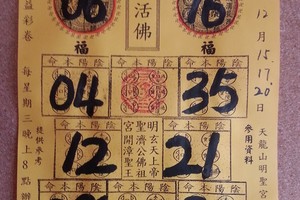 活佛
06
16
福
福
陰陽本命
陰陽本命
04
35
陰陽本命
陰陽本命
12
21
明玄天上帝
聖濟公佛祖
宮開漳聖王
陰陽本命
陰陽本命
益彩卷
每星期三晚上8點辦
提供參考
12月15.17.20日
天龍山明聖宮
參用資料